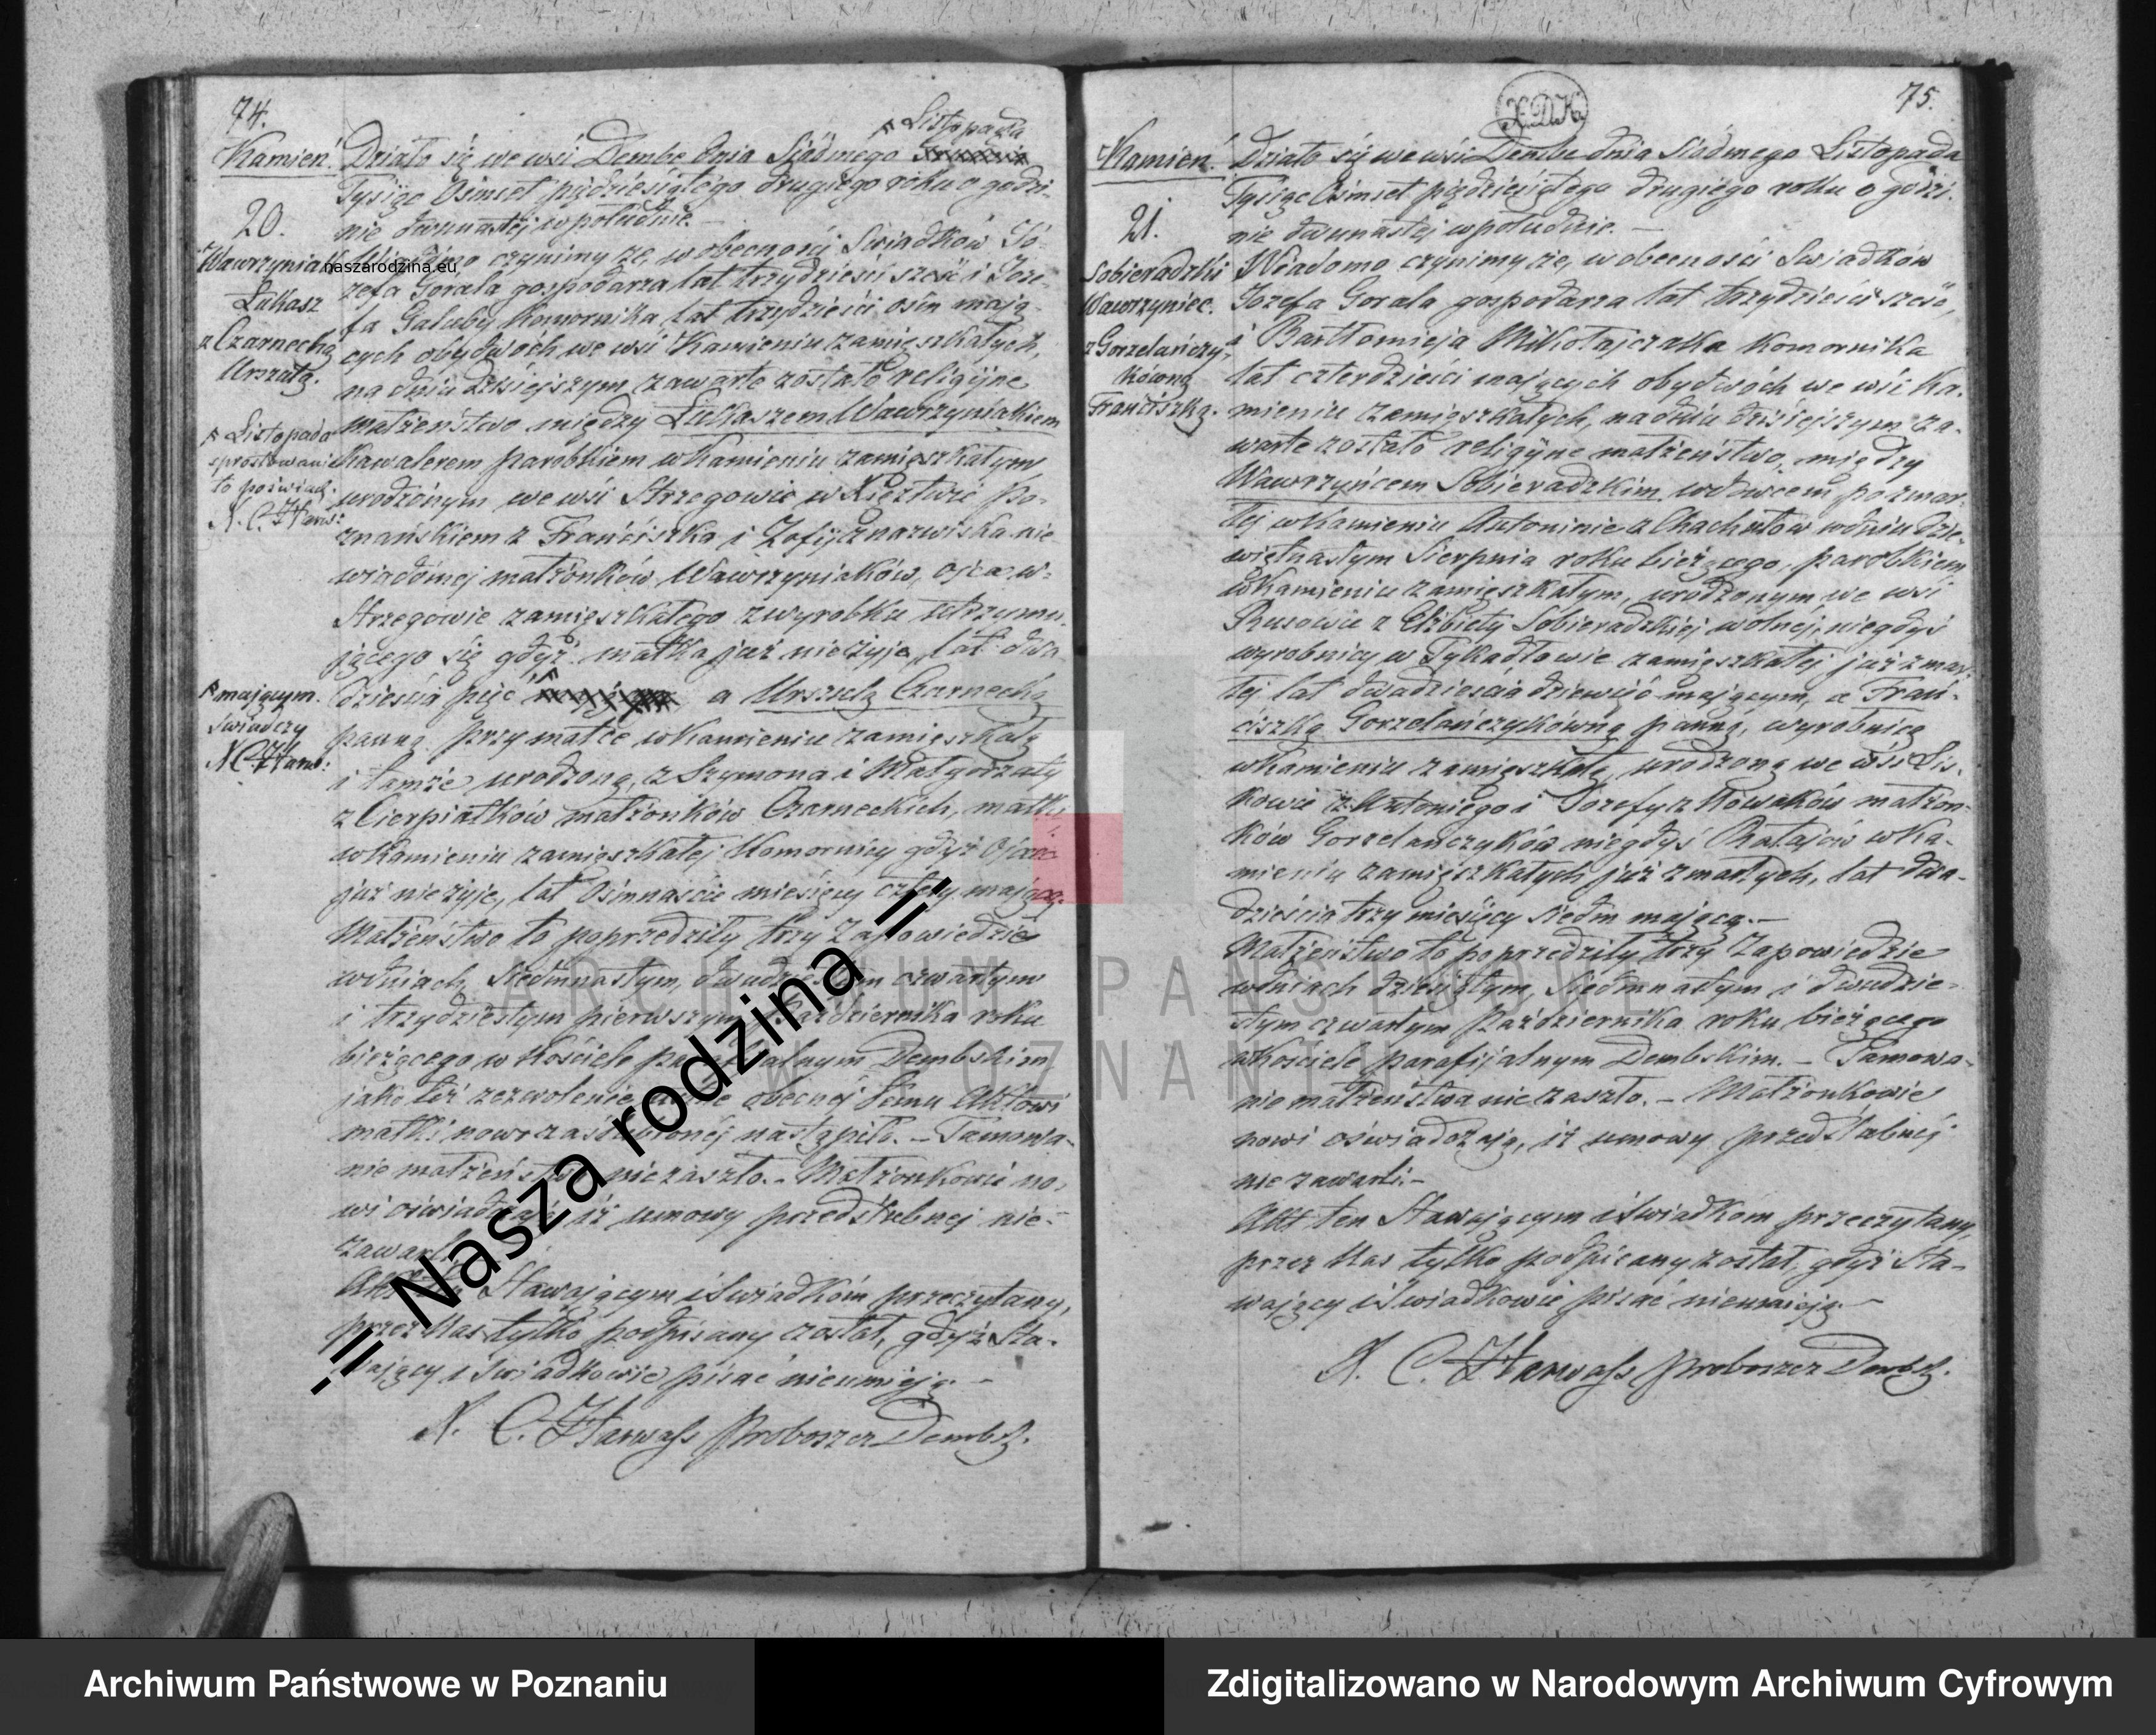 74.
Kamień.
20.
Wawrzyniak
Łukasz
z Czarnecką
Urszulą.
Listopada
sprostowanie
to poświad.
X. C. Harw:
mającym.
świadczy
X C Harw:
Listopada
Działo się we wsi Dembe dnia Siódmego
Tysiąc Ośmset pięćdziesiątego drugiego roku o godzi-
nie dwunastej w południe. –
Wiadomo czynimy że, w obecności Swiadków Jó-
zefa Gorala gospodarza lat trzydzieści sześć i Joze-
fa Gałuby Komornika lat trzydzieści ośm mają-
cych obydwóch we wsi Kamieniu zamięszkałych,
na dniu dzisiejszym zawarte zostało religijne
małżeństwo między Łukaszem Wawrzyniakiem
Kawalerem parobkiem w Kamieniu zamięszkałym
urodzonym we wsi Strzegowie w Xięztwie Po-
znańskiem z Franciszka i Zofiji z nazwiska nie
wiadomej małżonków Wawrzyniaków, ojca w
Strzegowie zamięszkałego z wyrobku utrzymu-
jącego się gdyż matka już nieżyje, lat dwa-
dzieścia pięć a Urszulą Czarnecką
panną przy matce w Kamieniu zamięszkałą
i tamże urodzoną, z Szymona i Małgorzaty
z Cierpiatków małżonków Czarneckich, matki
w Kamieniu zamięszkałej Komornicy gdyż Ojciec
już nie żyje, lat Ośmnaście miesięcy cztery mającą.
Małżeństwo to poprzedziły trzy Zapowiedzie
w dniach Siedmnastym, dwudziestym czwartym
i trzydziestym pierwszym Października roku
bieżącego w Kościele parafijalnym Dembskim
jako też zezwolenie ustne obecnej temu Aktowi
matki nowozaślubionej nastąpiło. – Tamowa-
nie małżeństwa niezaszło. – Małżonkowie no-
wi oświadczają iż umowy przedślubnej nie-
zawarli.
Akt ten Stawającym i Swiadkóm przeczytany,
przez Nas tylko podpisany został, gdyż Sta-
wający i Swiadkowie pisać nieumieją. –
X. C. Harwass Proboszcz Dembsk.
75.
X.D.K.
Kamień.
21.
Sobieradzki
Wawrzyniec.
z Gorzelańczy-
kówną
Franciszką.
Działo się we wsi Dembe dnia Siódmego Listopada
Tysiąc Ośmset pięćdziesiątego drugiego roku o godzi-
nie dwunastej w południe. –
Wiadomo czynimy że, w obecności Swiadków
Józefa Gorala gospodarza lat trzydzieści sześć,
i Bartłomieja Mikołajczaka Komornika
lat czterdzieści mających obydwóch we wsi Ka-
mieniu zamięszkałych, na dniu dzisiejszym za-
warte zostało religijne małżeństwo, między
Wawrzyńcem Sobieradzkim wdowcem po zmar-
łej w Kamieniu Antoninie z Chachułów w dniu Dzie-
więtnastym Sierpnia roku bieżącego, parobkiem
w Kamieniu zamięszkałym, urodzonym we wsi
Rusowie z Elżbiety Sobieradzkiej wolnej, niegdyś
wyrobnicy w Tykadłowie zamięszkałej już zmar-
łej lat dwadzieścia dziewięć mającym, a Fran-
ciszką Gorzelańczykówną panną, wyrobnicą
w Kamieniu zamięszkałą urodzoną we wsi Lis-
kowie z Antoniego i Jozefy z Nowaków małżon-
ków Gorzelanczyków niegdyś Ratajów w Ka-
mieniu zamięszkałych już zmarłych, lat dwa-
dzieścia trzy miesięcy siedm mającą. –
Małżeństwo to poprzedziły trzy Zapowiedzie
w dniach dziesiątym, Siedmnastym i dwudzie-
stym czwartym Października roku bieżącego
w Kościele parafijalnym Dembskim. – Tamowa-
nie małżeństwa nie zaszło. – Małżonkowie
nowi oświadczają, iż umowy przedślubnej
nie zawarli. –
Akt ten Stawającym i Swiadkom przeczytany,
przez Nas tylko podpisany został, gdyż Sta-
wający i Swiadkowie pisać nieumieją. –
X. C. Harwass Proboszcz Dembsk.
naszarodzina.eu
.:: Nasza rodzina ::.
ARCHIWUM PAŃSTWOWE
W POZNANIU
Archiwum Państwowe w Poznaniu
Zdigitalizowano w Narodowym Archiwum Cyfrowym